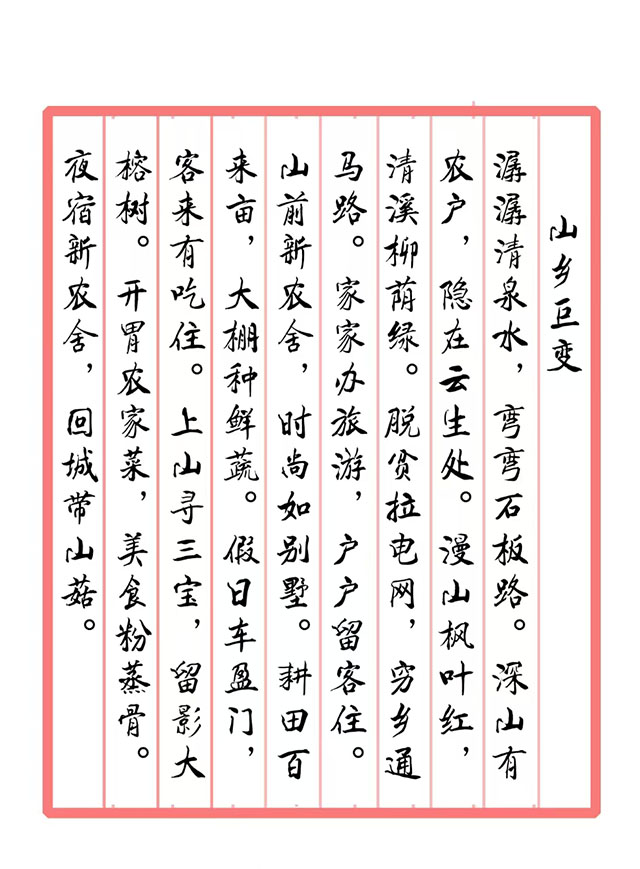 山乡巨变
潺潺清泉水，弯弯石板路。深山有
农户，隐在云生处。漫山枫叶红，
清溪柳荫绿。脱贫拉电网，穷乡通
马路。家家办旅游，户户留客住。
山前新农舍，时尚如别墅。耕田百
来亩，大棚种鲜蔬。假日车盈门，
客来有吃住。上山寻三宝，留影大
榕树。开胃农家菜，美食粉蒸骨。
夜宿新农舍，回城带山菇。